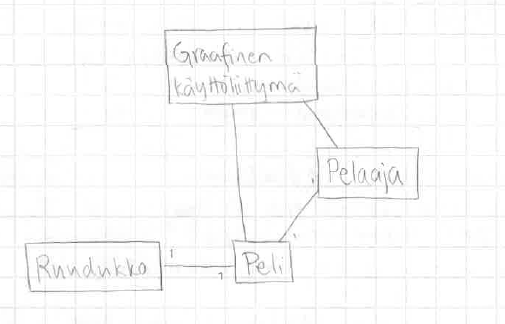 Graafinen
käyttöliittymä
Pelaaja
1
1
Ruudukko
1
1
Peli